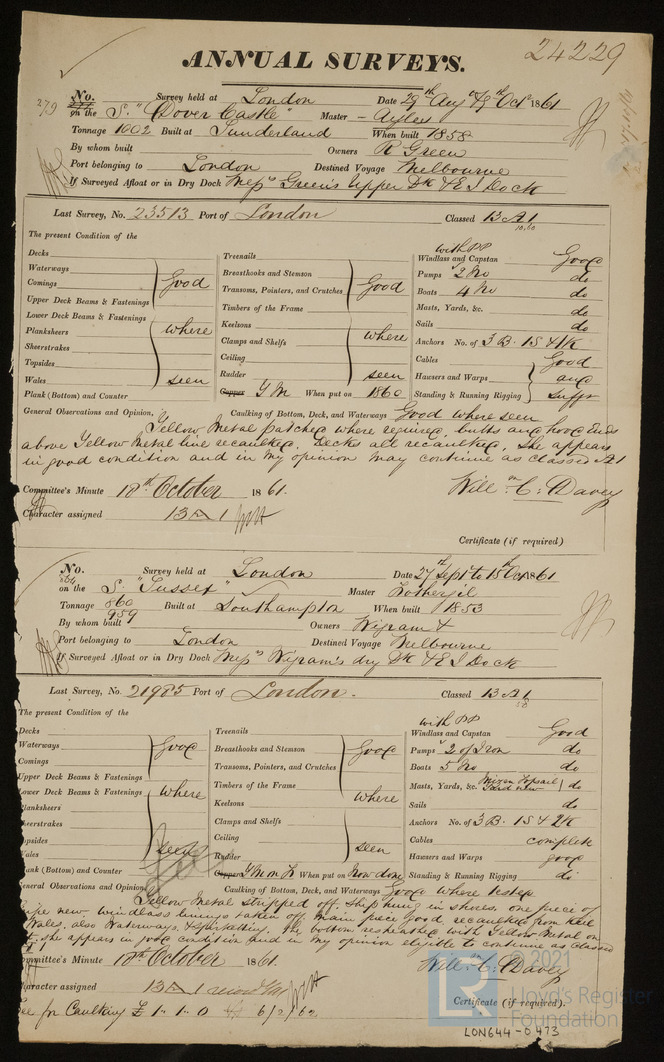 24229
ANNUAL SURVEYS.
279
No. Survey held at London Date 29th Aug & 9th Oct 1861
on the S. "Dover Castle" Master - Ayles
Tonnage 1002 Built at Sunderland When built 1858
By whom built Owners R Green
Port belonging to London Destined Voyage Melbourne
If Surveyed Afloat or in Dry Dock Messrs Green's Upper Dk & E I Dock
Last Survey, No. 23513 Port of London Classed 13 A 1
10,60
The present Condition of the
Decks
Waterways
Comings
Upper Deck Beams & Fastenings
Lower Deck Beams & Fastenings
Planksheers
Sheerstrakes
Topsides
Wales
Good where seen
Plank (Bottom) and Counter
Treenails
Breasthooks and Stemson
Transoms, Pointers, and Crutches
Timbers of the Frame
Keelsons
Clamps and Shelfs
Ceiling
Rudder
Good where seen
Copper Y M When put on 1860
with PP
Windlass and Capstan Good
Pumps 2 No do
Boats 4 No do
Masts, Yards, &c. do
Sails do
Anchors No. of 3 B. 1 S & 1 K
Cables Good
Hawsers and Warps and
Standing & Running Rigging sufft
General Observations and Opinion, Caulking of Bottom, Deck, and Waterways Good where seen
Yellow Metal patched where required, butts and hood Ends
above Yellow Metal line recaulked. Decks all recaulked. She appears
in good condition and in my opinion may continue as classed A1
Committee's Minute 18th October 1861.
Will m C. Davey
Character assigned 13 A 1
Certificate (if required)
No. Survey held at London Date 27th Sept to 15th Oct 1861
on the S. "Sussex" Master
Tonnage 860 Built at Southampton When built 1853
959
By whom built Owners Wigram &
Port belonging to London Destined Voyage Melbourne
If Surveyed Afloat or in Dry Dock Messrs Wigram's dry Dk & E I Dock
Last Survey, No. 21985 Port of London. Classed 13 A 1
58
The present Condition of the
Decks
Waterways
Comings
Upper Deck Beams & Fastenings
Lower Deck Beams & Fastenings
Planksheers
heerstrakes
opsides
Wales
Good where seen
ank (Bottom) and Counter
Treenails
Breasthooks and Stemson
Transoms, Pointers, and Crutches
Timbers of the Frame
Keelsons
Clamps and Shelfs
Ceiling
Rudder
Good where seen
Copper Y M on F When put on Now done
with PP
Windlass and Capstan Good
Pumps 2 of Iron do
Boats 5 No do
Masts, Yards, &c. Mizen Topsail Yard new do
Sails do
Anchors No. of 3 B. 1 S & 2 K
Cables complete
Hawsers and Warps good
Standing & Running Rigging do
eneral Observations and Opinion, Caulking of Bottom, Deck, and Waterways Good where seen
Yellow Metal stripped off, Ship hung in shores, one piece of
new. windlass linings taken off, main piece good, recaulked from Keel
Wales, also Waterways, & Spirketting. The bottom resheathed with Yellow Metal on
She appears in good condition and in my opinion eligible to continue as classed
A1
ommittee's Minute 18th October 1861.
Will m C. Davey
haracter assigned 13 A 1
Certificate (if required).
ee for Caulking £ 1. 1. 0 6/2/62
© 2021
LR
Lloyd's Register
Foundation
LON644-0473